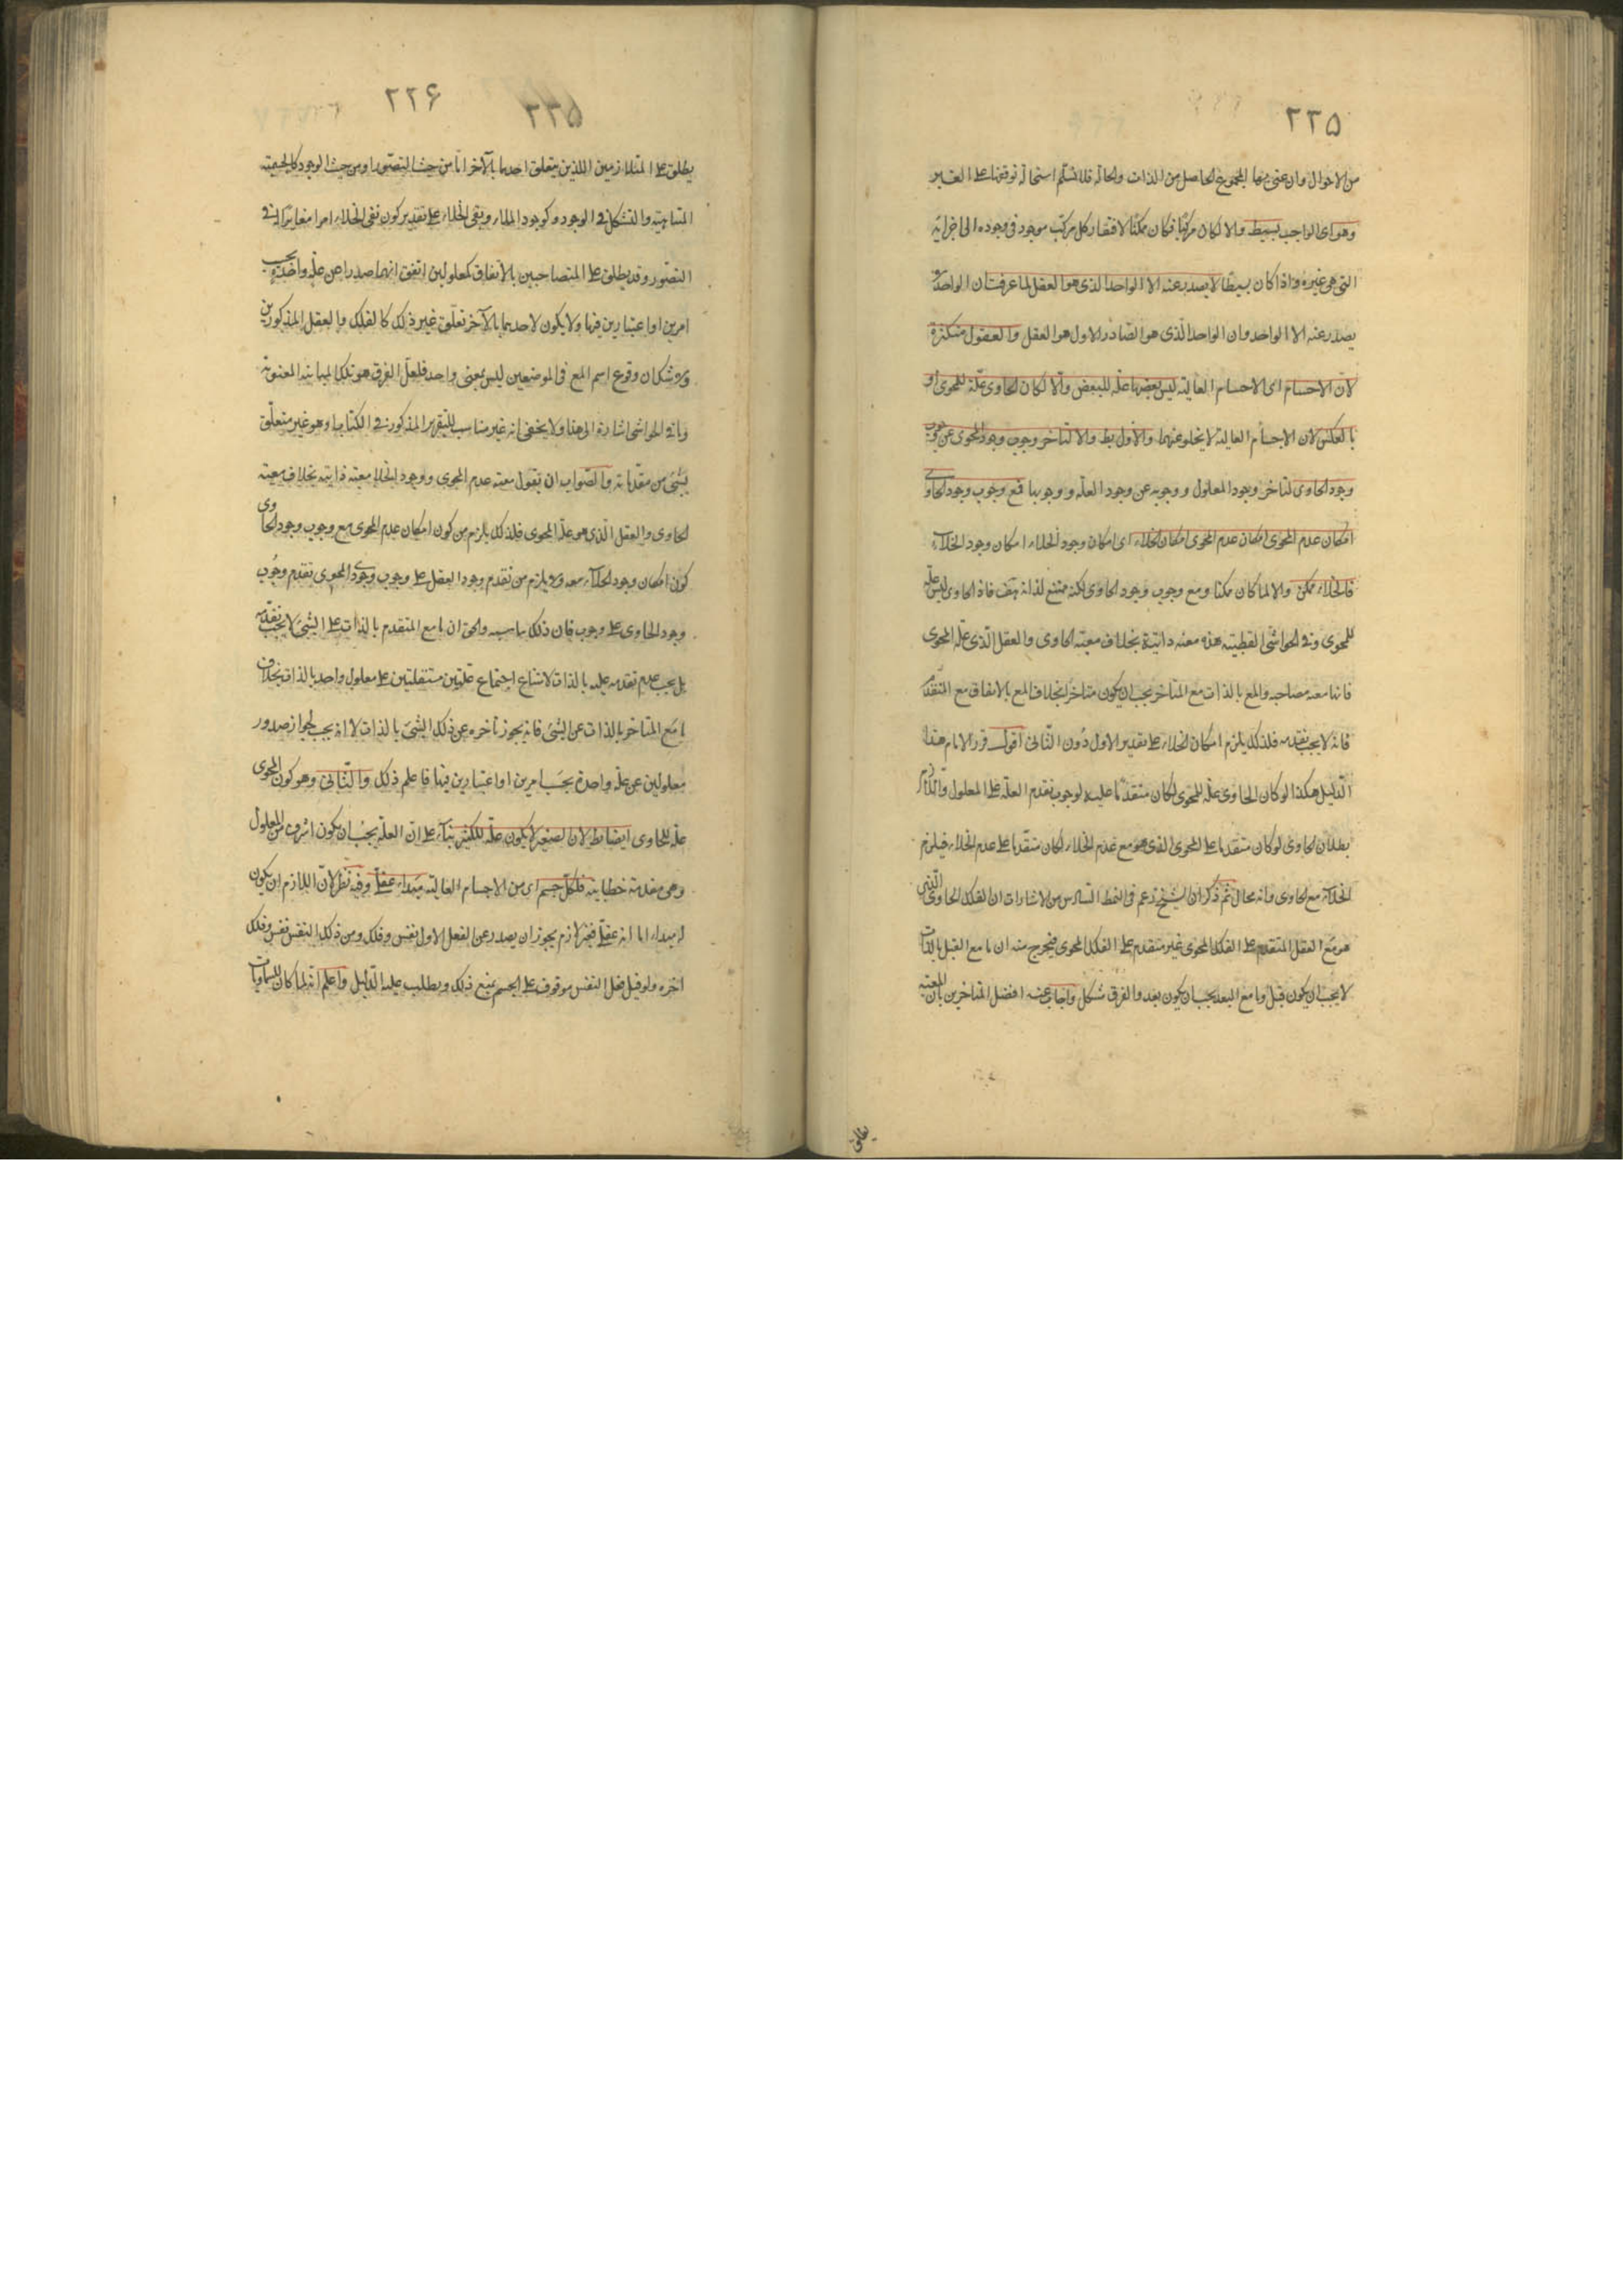 ٢٢۵
من الاحوال وان عنى بها المجموع الحاصل من الذات والحالة فلا نسلم استحالة توقفها على الغير
وهو اى الواجب بسيط والا لكان مركبا فكان ممكنا لافتقار كل مركب موجود فى وجوده الى اجزائه
التى هى غيره واذا كان بسيطا لا يصدر عنه الا الواحد الذى هو العقل لما عرفت ان الواحد لا
يصدر عنه الا الواحد وان الواحد الذى هو الصادر الاول هو العقل والعقول متكثرة
لان الاجسام اى الاجسام العالية ليس بعضها علة للبعض والا لكان الحاوى علة للمحوى او
بالعكس لان الاجسام العالية لا يخلو عنهما والاول بط والا لتاخر وجوب وجود المحوى عن وجوب
وجود الحاوى لتاخر وجود المعلول ووجوبه عن وجود العلة ووجوبها فمع وجوب وجود الحاوى
امكان عدم المحوى امكان عدم المحوى امكان الخلاء اى امكان وجود الخلاء امكان وجود الخلاء
فالخلاء ممكن والا لما كان ممكنا ومع وجوب وجود الحاوى لكنه ممتنع لذاته هف فاذ الحاوى ليس علة
للمحوى وفى الحواشى القطبية هذه معية ذاتية بخلاف معية الحاوى والعقل الذى علة المحوى
فانها معية مصاحبة والمع بالذات مع المتاخر يجب ان يكون متاخرا بخلاف المع بالاتفاق مع المتقدم
فانه لا يجب تقدمه فلذلك يلزم امكان الخلاء على تقدير الاول دون الثانى اقول قرر الامام هذا
الدليل هكذا لو كان الحاوى علة للمحوى لكان متقدما عليه لوجوب تقدم العلة على المعلول واللازم
بطلان الحاوى لو كان متقدما على المحوى الذى هو مع عدم الخلاء لكان متقدما على عدم الخلاء فيلزم
الخلاء مع الحاوى وانه محال ثم ذكر ان الشيخ زعم فى النمط السادس من الاشارات ان الفلك الحاوى الذى
هو مع العقل المتقدم على الفلك المحوى غير متقدم على الفلك المحوى فيخرج منه ان ما مع القبل بالذات
لا يجب ان يكون قبل وما مع البعد يجب ان يكون بعد والفرق مشكل واجاب عنه افضل المتاخرين بان المعية
يطلق
٢٢۶
٢٢۵
يطلق على المتلازمين اللذين يتعلق احدهما بالآخر اما من حيث التصور او من حيث الوجود كالجسمية
المتناهية والتشكل فى الوجود وكوجود الملاء ونفى الخلاء على تقدير كون نفى الخلاء امرا مغايرا له فى
التصور وقد يطلق على المتصاحبين بالاتفاق كمعلولين اتفق انهما صدرا عن علة واحدة بحسب
امرين او اعتبارين فيها ولا يكون لاحدهما بالآخر تعلق غير ذلك كالفلك والعقل المذكورين
ولا شك ان وقوع اسم المع فى الموضعين ليس بمعنى واحد فلعل الفرق هو تلك المباينة المعنوية
وما فى الحواشى اشارة الى هذا ولا يخفى انه غير مناسب للتقرير المذكور فى الكتاب او هو غير متعلق
بشئ من مقدماته والصواب ان تقول معية عدم المحوى ووجود الخلاء معية ذاتية بخلاف معية
الحاوى والعقل الذى هو علة المحوى فلذلك يلزم من كون امكان عدم المحوى مع وجوب وجود الحاوى
كون امكان وجود الخلاء معه ولا يلزم من تقدم وجود العقل على وجوب وجود المحوى تقدم وجوب
وجود الحاوى على وجوب فان ذلك والحق ان ما مع المتقدم بالذات على الشئ لا يجب تقدمه
بل يجب عدم تقدمه عليه بالذات لامتناع اجتماع علتين مستقلتين على معلول واحد بالذات بخلاف
ما مع المتاخر بالذات عن الشئ فانه يجوز تأخره عن ذلك الشئ بالذات لا انه يجب لجواز صدور
معلولين عن علة واحدة بحسب امرين او اعتبارين فيها فاعلم ذلك والثانى وهو كون المحوى
علة للحاوى ايضا بط لان الصغير لا يكون علة للكبير بناء على ان العلة يجب ان يكون اشرف من المعلول
وهى مقدمة خطابية فلكل جسم اى من الاجسام العالية مبداء عقلى وفيه نظر لان اللازم ان يكون
له مبداء اما انه عقلى فغير لازم يجوز ان يصدر عن العقل الاول نفس وفلك ومن ذلك النفس نفس وفلك
اخره ولو قيل فعل النفس موقوف على الجسم بمنع ذلك ويطلب عليه الدليل واعلم انه لما كان للسماويات